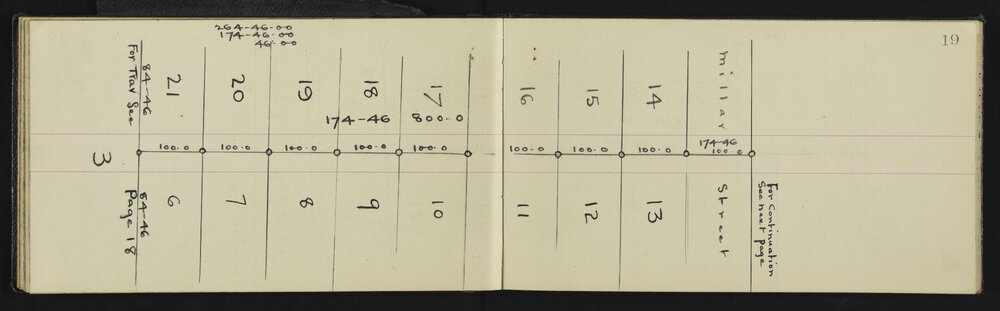 19
264-46-00
174-46-00
46-00
For Trav See
84-46
21 20 19 18 17 16 15 14 millar
174-46 800.0
174-46
3 100.0 100.0 100.0 100.0 100.0 100.0 100.0 100.0 100.0
6 7 8 9 10 11 12 13 Street
84-46
Page 18
For Continuation
See next page